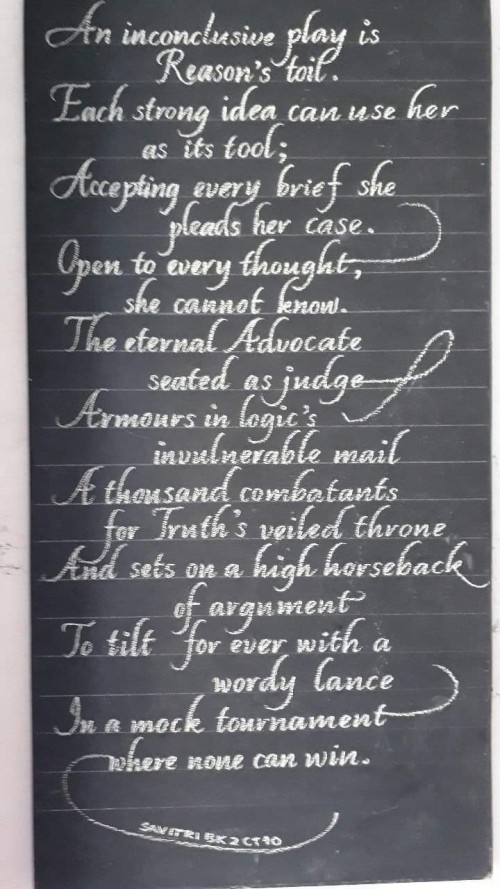 An inconclusive play is
Reason's toil.
Each strong idea can use her
as its tool;
Accepting every brief she
pleads her case.
Open to every thought,
she cannot know.
The eternal Advocate
seated as judge
Armours in logic's
invulnerable mail
A thousand combatants
for Truth's veiled throne
And sets on a high horseback
of argument
To tilt for ever with a
wordy lance
In a mock tournament
where none can win.
SAVITRI BK 2 CT 10